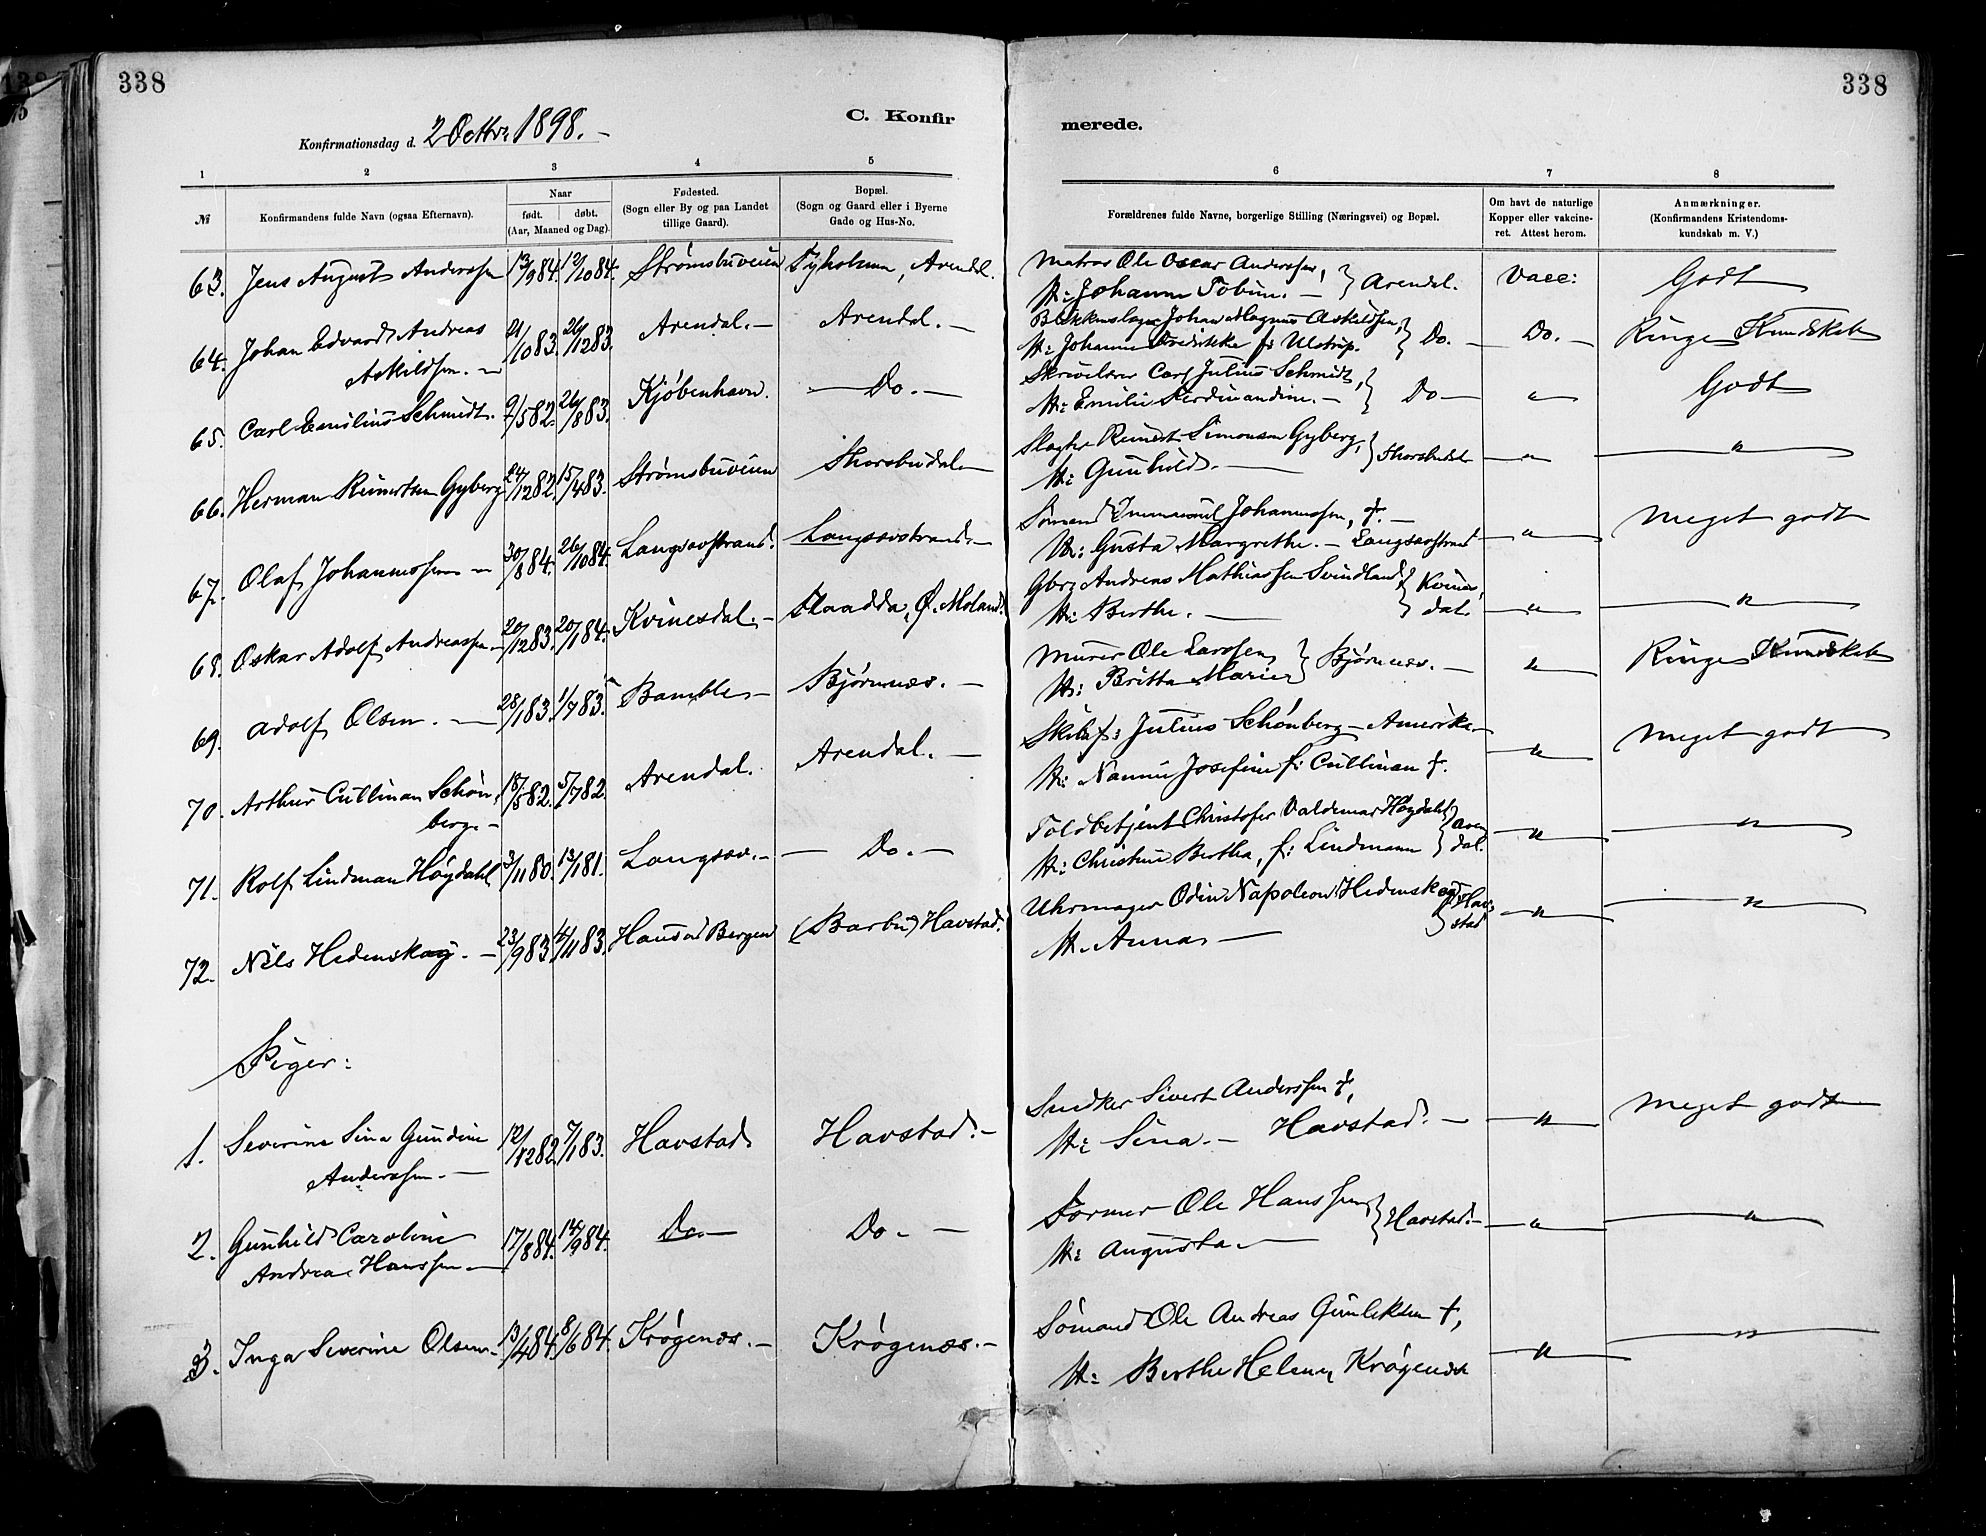 338
338
C. Konfir
merede.
Konfirmationsdag d. 2 Octbr 1898. –
1 2 3 4 5 6 7 8
№
Konfirmandens fulde Navn (ogsaa Efternavn).
Naar
født. døbt.
(Aar, Maaned og Dag).
Fødested.
(Sogn eller By og paa Landet
tillige Gaard).
Bopæl.
(Sogn og Gaard eller i Byerne
Gade og Hus-No.
Forældrenes fulde Navne, borgerlige Stilling (Næringsvei) og Bopæl.
Om havt de naturlige
Kopper eller vakcine-
ret. Attest herom.
Anmærkninger.
(Konfirmandens Kristendoms-
kundskab m. V.)
63. Jens August Anderssen 13/9 84. 12/10 84. Strømsbuveien Tyholmen, Arendal. Matros Ole Oscar Anderssen, } Arendal. Vacc: Godt
H: Johanne Tobine. –
64. Johan Edvard Andreas 21/10 83. 26/12 83. Arendal. – Arendal. – Blikkenslager Johan Magnus Askildsen, } Do. – Do. – Ringe Kundskab
Askildsen. – H: Johanne Fredrikke f: Ulstrup.
65. Carl Emilius Schmidt. 9/5 82. 26/8 83. Kjøbenhavn. – Do. – Skrivelærer Carl Julius Schmidt, } Do – " Godt
H: Emilie Ferdinandine. –
66. Herman Reinertsen Gyberg 24/12 82. 15/4 83. Strømsbuveien Skarsbudal – Slagter Reinert Simonsen Gyberg, } Skarsbudal " "
H: Gunhild. –
67. Olaf Johannessen – 30/8 84. 26/10 84. Langsævstrand. Langsævstrand. – Sømand Immanuel Johannessen, †. – " Meget godt
H: Gusta Margrethe. – Langsævstrand
68. Oskar Adolf Andreassen – 20/12 83. 20/1 84. Kvinesdal. – Flaadda, Ø. Moland. Gbr: Andreas Mathiassen Svindland } Kvines, " "
H: Berthe. – dal.
69. Adolf Olsen. – 28/1 83. 1/7 83. Bamble – Bjørnnæs. – Murer Ole Larssen } Bjørnnæs. – " Ringe Kundskab
H: Britta Marie
70. Arthur Cullinan Schön, 18/5 82. 5/7 82. Arendal. Arendal. – Skibsf: Julius Schönberg – Amerika – " Meget godt
berg. – H: Nannie Josefine f: Cullinan †.
71. Rolf Lindman Høydahl 3/11 80. 13/1 81. Langsæv. – – Do. – Toldbetjent Christofer Valdemar Høydahl } Aren " "
H: Christine Bertha, f: Lindmann dal.
72. Nils Hedenskog. – 23/9 83. 4/11 83. Haus ad Bergen (Barbu) Havstad. Uhrmager Odin Napoleon Hedenskog } Hav, " "
H. Anna – stad
Piger:
1. Severine Sina Gundine 12/12 82. 7/1 83. Havstad Havstad. – Snedker Sivert Anderssen †, " Meget godt
Anderssen. – H: Sina. – Havstad. –
2. Gunhild Caroline 17/8 84. 14/9 84. Do. – Do. – Former Ole Hanssen } Havstad. – " "
Andrea Hanssen. – H: Augusta. –
3. Inga Severine Olsen. – 13/4 84. 8/6 84. Krøgenæs. – Krøgenæs. – Sømand Ole Andreas Gunleksen †, " "
H: Berthe Helene Krøgenæs